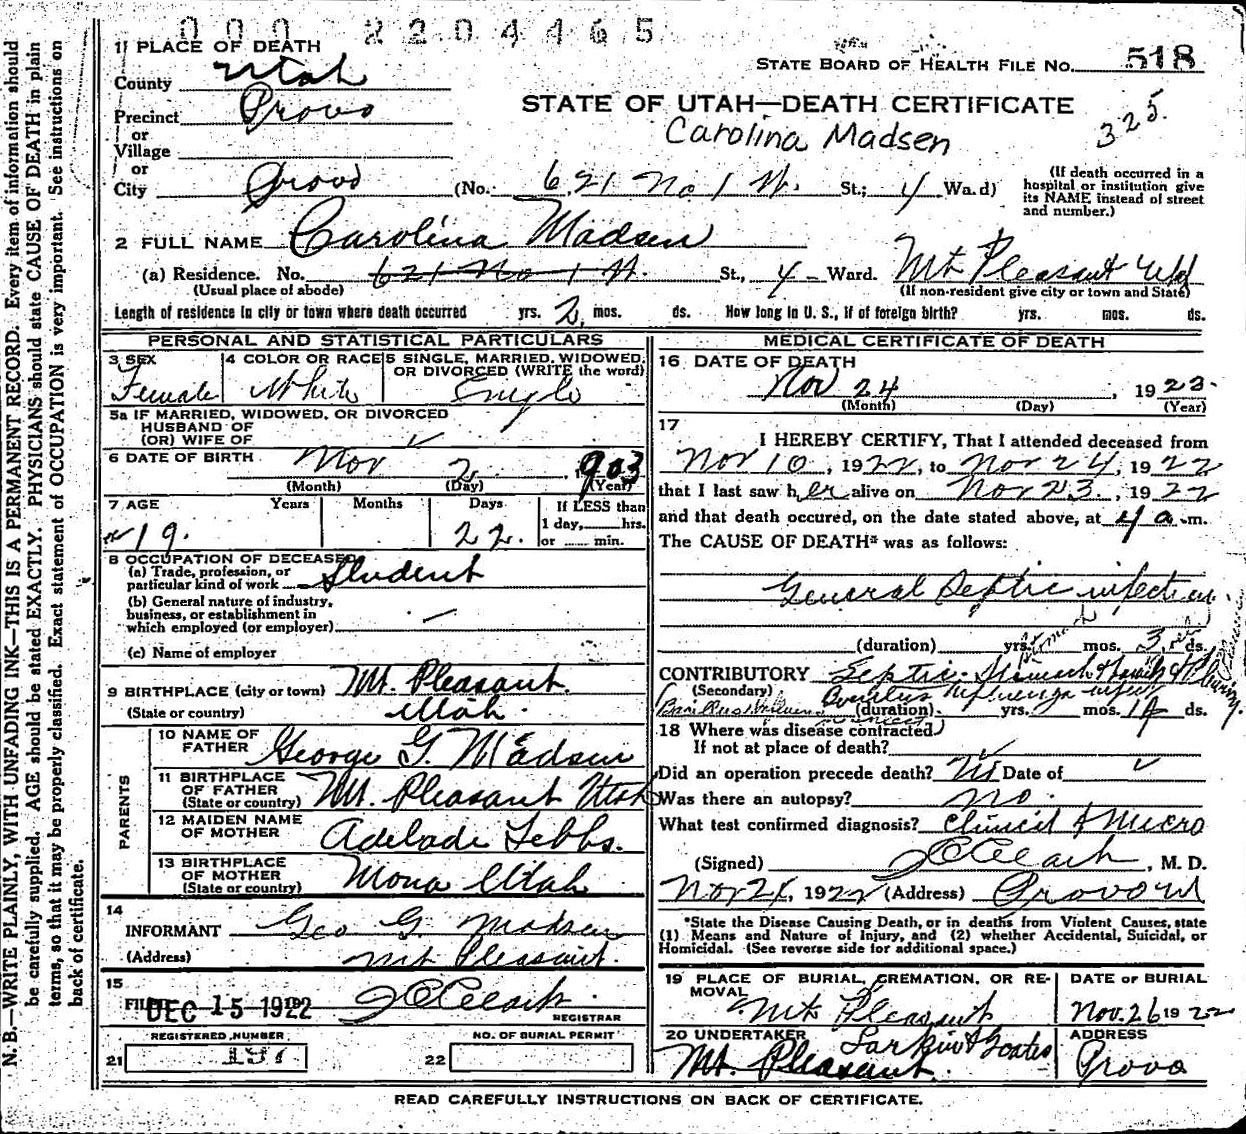 0 0 0 2 2 0 4 4 6 5
1 PLACE OF DEATH
STATE BOARD OF HEALTH FILE NO. 518
County Utah
STATE OF UTAH—DEATH CERTIFICATE
Precinct Provo
Carolina Madsen
325.
or
Village
or
City Provo (No. 621 No 1 W. St.; 4 Wa.d)
(If death occurred in a hospital or institution give its NAME instead of street and number.)
2 FULL NAME Carolina Madsen
(a) Residence. No. 621 No 1 W. St., 4 - Ward. Mt Pleasant Utd
(Usual place of abode)
(If non-resident give city or town and State)
Length of residence in city or town where death occurred yrs. 2 mos. ds. How long in U. S., if of foreign birth? yrs. mos. ds.
PERSONAL AND STATISTICAL PARTICULARS
3 SEX Female
4 COLOR OR RACE White
5 SINGLE, MARRIED, WIDOWED, OR DIVORCED (WRITE the word) Single
5a IF MARRIED, WIDOWED, OR DIVORCED
HUSBAND OF
(OR) WIFE OF
6 DATE OF BIRTH Nov 2, 1903
(Month) (Day) (Year)
7 AGE Years Months Days If LESS than
19. 22. 1 day, hrs.
or min.
8 OCCUPATION OF DECEASED
(a) Trade, profession, or
particular kind of work Student
(b) General nature of industry,
business, or establishment in
which employed (or employer) —
(c) Name of employer
9 BIRTHPLACE (city or town) Mt. Pleasant.
(State or country) Utah.
PARENTS
10 NAME OF FATHER George G. Madsen
11 BIRTHPLACE OF FATHER (State or country) Mt. Pleasant Utah
12 MAIDEN NAME OF MOTHER Adelade Tebbs.
13 BIRTHPLACE OF MOTHER (State or country) Mona Utah
14
INFORMANT Geo G. Madsen
(Address) Mt Pleasant.
15
FILED DEC 15 1922 REGISTRAR
REGISTERED NUMBER
21
NO. OF BURIAL PERMIT
22
MEDICAL CERTIFICATE OF DEATH
16 DATE OF DEATH
Nov 24, 1923.
(Month) (Day) (Year)
17
I HEREBY CERTIFY, That I attended deceased from
Nov 10, 1922, to Nov 24, 1922
that I last saw her alive on Nov 23, 1922
and that death occured, on the date stated above, at 4 a.m.
The CAUSE OF DEATH* was as follows:
General Septic infection
(duration) yrs. mos. 3 ds.
CONTRIBUTORY Septic
(Secondary) Bacillus Influenza
(duration) yrs. mos. 14 ds.
18 Where was disease contracted
If not at place of death?
Did an operation precede death? No Date of
Was there an autopsy? no.
What test confirmed diagnosis? Clinical & Micro
(Signed) , M. D.
Nov 24, 1922 (Address) Provo
*State the Disease Causing Death, or in deaths from Violent Causes, state
(1) Means and Nature of Injury, and (2) whether Accidental, Suicidal, or
Homicidal. (See reverse side for additional space.)
19 PLACE OF BURIAL, CREMATION, OR REMOVAL
Mt Pleasant
DATE OF BURIAL
Nov. 26 1922
20 UNDERTAKER
Mt. Pleasant.
ADDRESS
Provo
READ CAREFULLY INSTRUCTIONS ON BACK OF CERTIFICATE.
N. B.—WRITE PLAINLY, WITH UNFADING INK—THIS IS A PERMANENT RECORD. Every item of information should
be carefully supplied. AGE should be stated EXACTLY. PHYSICIANS should state CAUSE OF DEATH in plain
terms, so that it may be properly classified. Exact statement of OCCUPATION is very important. See instructions on
back of certificate.